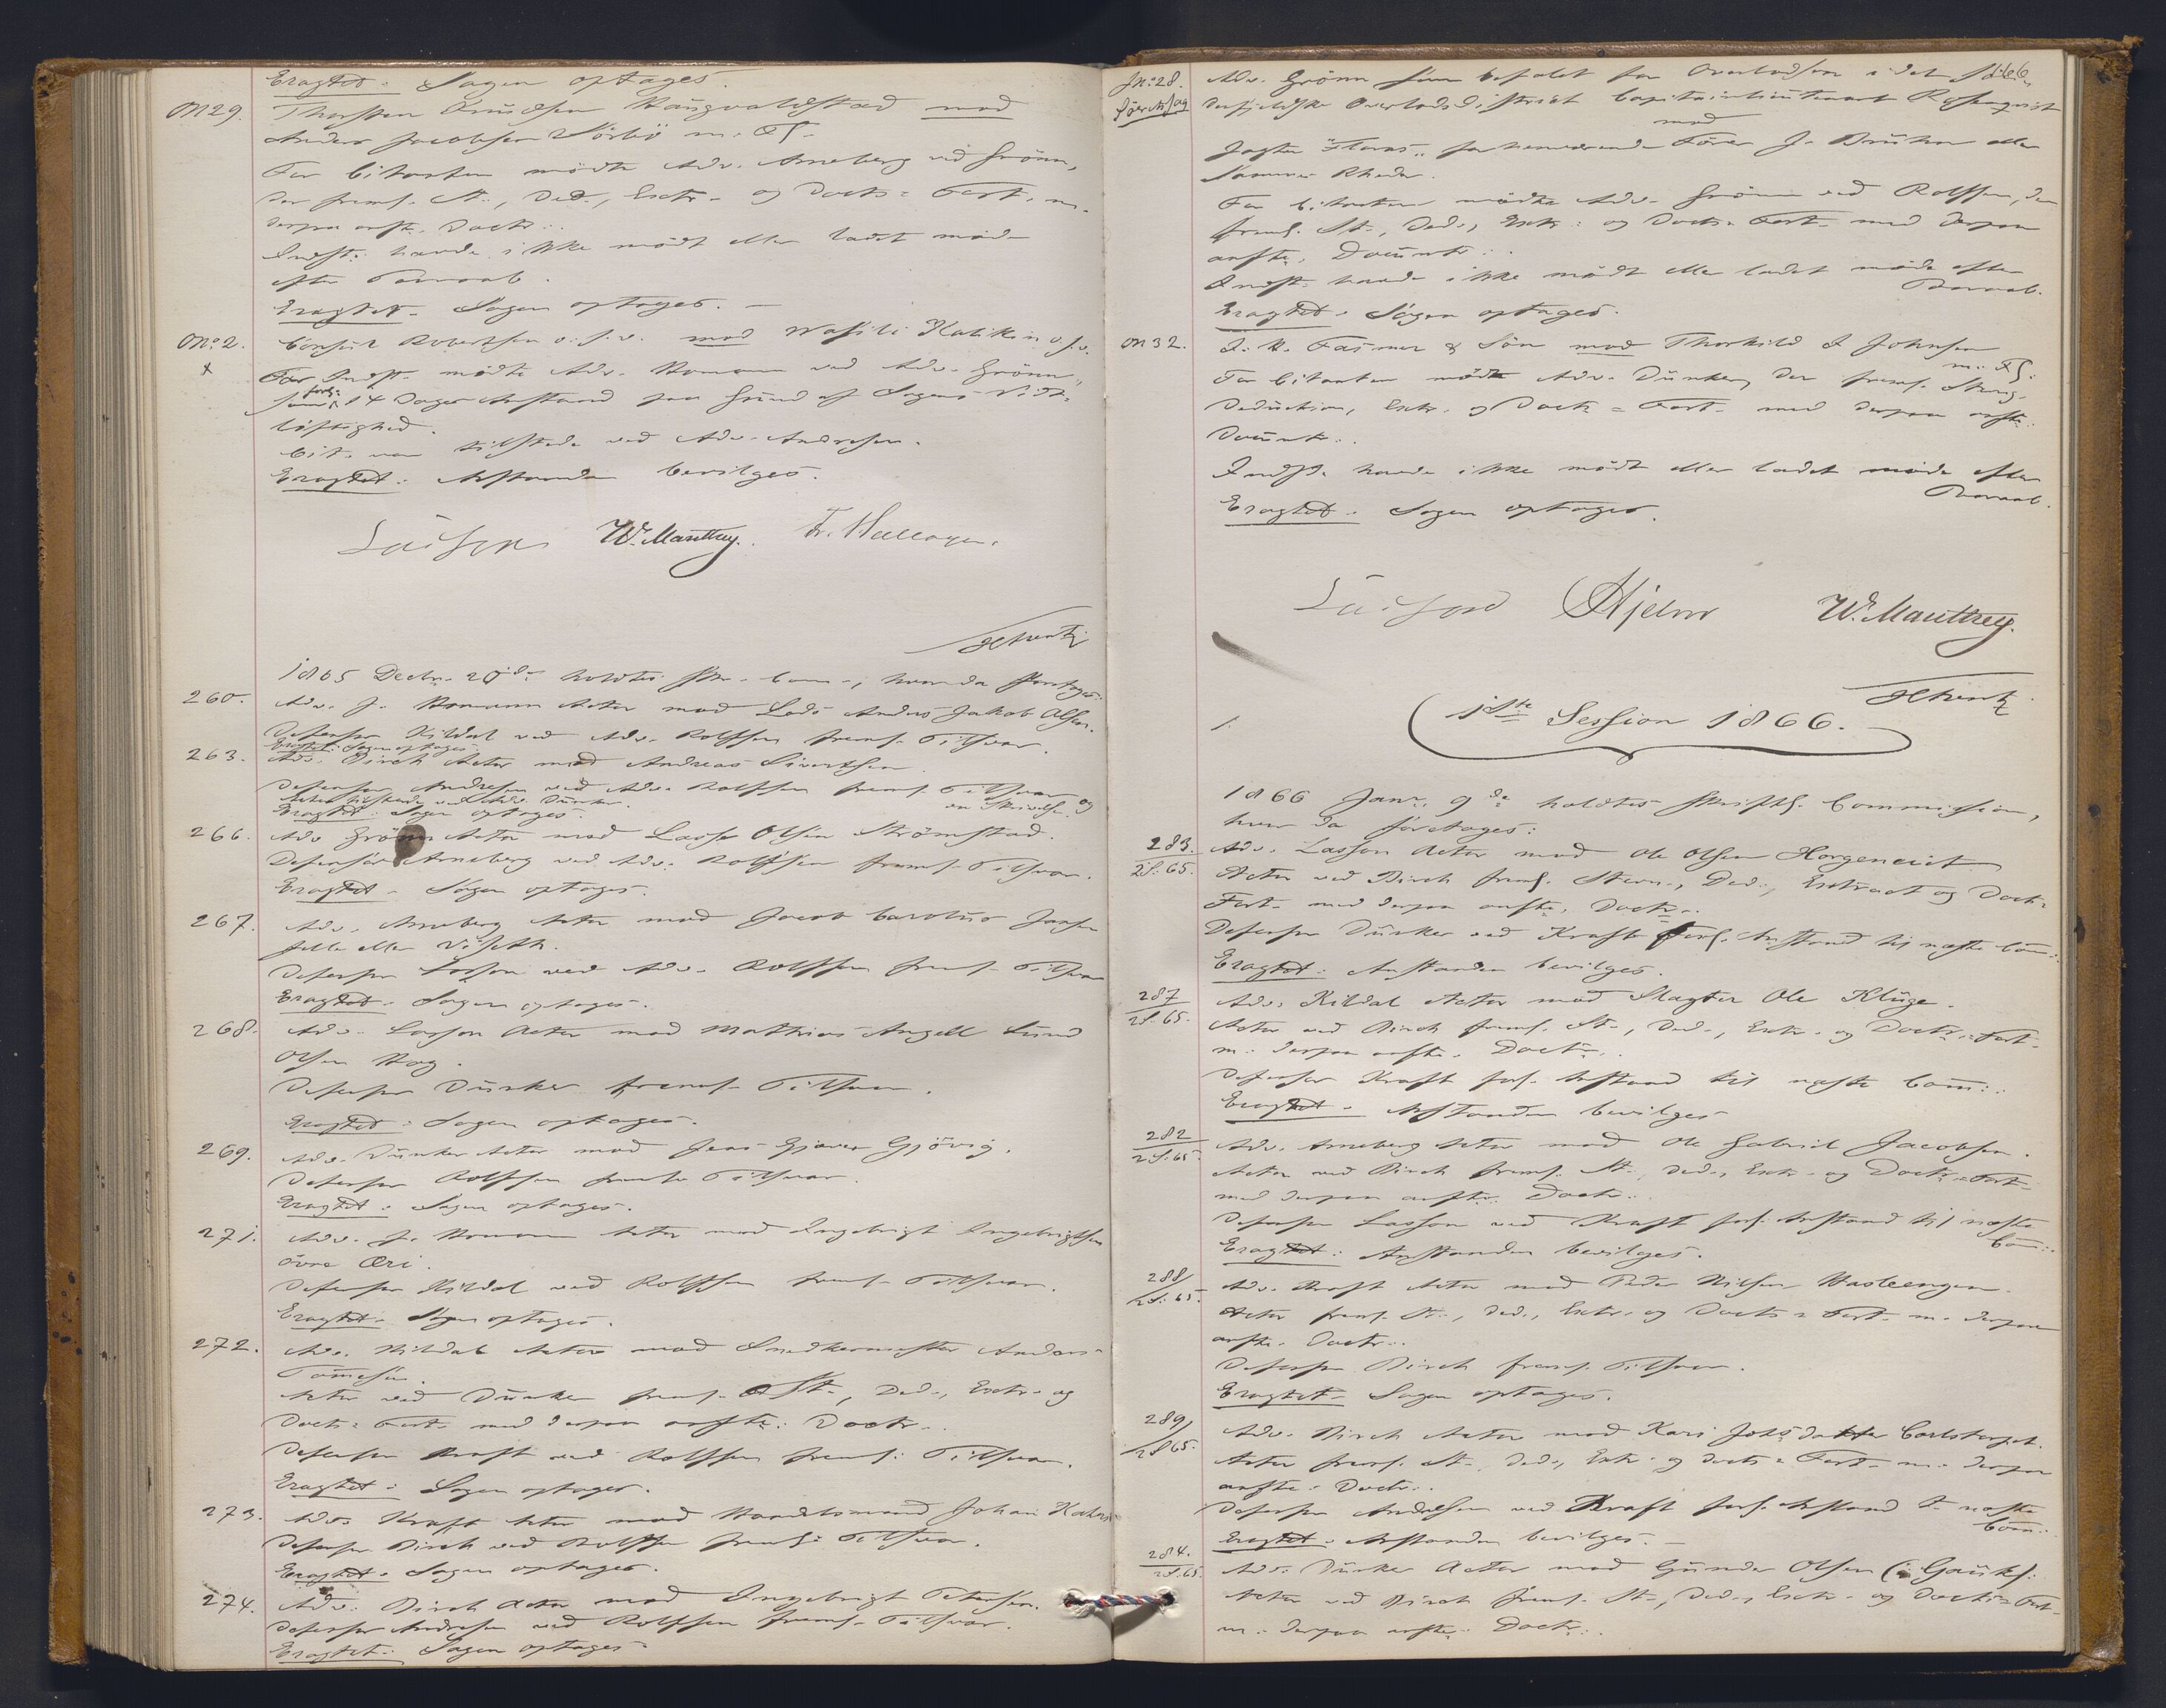 Eragtet: Sagen optages.
No 29. Thorsten Knudsen Haugvaldstad mod
Anders Jacobsen m: Fl.
For Citanten mødte Adv. Arneberg ved Grönn,
der frems. St., Ded., Extr. og Doctr. Fort. m.
derpaa anfte. Doctr..
Indst: havde ikke mødt eller ladet møde
efter Paaraab.
Eragtet. Sagen optages. —
No. 2. Consul Robertson o. s. v. mod Wasili Kalikin o. s. v.
For Indst. mødte Adv. Homann ved Adv. Grönn,
som forl. 14 Dages Anstand paa Grund af Sagens Vidt-
løftighed.
Cit. var tilstede ved Adv. Andresen.
Eragtet: Anstanden bevilges.
Lasson W. Manthey. Fr. Hallager.
1865 Decbr. holdtes Skr. Com., hvor da foretoges:
260. Adv. J. Homann Actor mod Lods Anders Jakob Olsen.
Defensor Kildal ved Adv. Rolffsen frems. Tilsvar.
Eragtet: Sagen optages.
263. Adv. Birch Actor mod Andreas Sivertsen.
Defensor Andresen ved Adv. Rolffsen frems. Tilsvar og
en Skrivelse.
Actor tilstede ved Adv. Dunker.
Eragtet: Sagen optages.
266. Adv. Grönn Actor mod Lasse Olsen Strömstad.
Defensor Arneberg ved Adv. Rolffsen frems. Tilsvar.
Eragtet. Sagen optages.
267. Adv. Arneberg Actor mod Jacob Carolus Jansen
eller
Defensor Lasson ved Adv. Rolffsen frems. Tilsvar
Eragtet. Sagen optages.
268. Adv. Lasson Actor mod Mathias Angell Lund
Olsen Hog.
Defensor Dunker frems. Tilsvar.
Eragtet: Sagen optages.
269. Adv. Dunker Actor mod Jens Gjövig.
Defensor Rolffsen frems. Tilsvar.
Eragtet: Sagen optages.
271. Adv. J. Homann Actor mod Ingebrigt Ingebrigtsen
övre Øri.
Defensor Kildal ved Rolffsen frems. Tilsvar.
Eragtet. Sagen optages.
272. Adv. Kildal Actor mod Snedkermester Anders
Actor ved Dunker frems. St., Ded., Extr. og
Doctr. Fort. med derpaa anfte: Doctr..
Defensor Kraft ved Rolffsen frems: Tilsvar.
Eragtet: Sagen optages.
273. Adv. Kraft Actor mod Handelsmand Johan
Defensor Birch ved Rolffsen frems: Tilsvar.
Eragtet. Sagen optages.
274. Adv. Birch Actor mod Ingebrigt Petersen.
Defensor Andresen ved Rolffsen frems. Tilsvar.
Eragtet. Sagen optages.
No. 28.
Adv. Grönn som befalet for Overlodsen i det
Overlodsdistrict Capitainlieutenant Rosenqvist
mod
Jagten "Flores" Fører J. Bruhn eller
sammes Rheder.
For Citanten mødte Adv. Grönn ved Rolffsen, der
frems. St., Ded., Extr. og Doctr. Fort. med derpaa
anfte. Docum̄tr..
Indst. havde ikke mødt eller ladet møde efter
Paaraab.
Eragtet. Sagen optages.
No 32. J. N. Fasmer & Sön mod Thorkild J Johnsen
m: Fl:
For Citanten mødte Adv. Dunker, der frems. Stevng.
Deduction, Extr. og Doctr. Fort. med derpaa anfte:
Indst. havde ikke mødt eller ladet møde efter
Paaraab.
Eragtet. Sagen optages.
Lasson Hjelm W. Manthey.
1ste Session 1866.
1866 Janr. 9de holdtes skriftl. Commission,
hvor da foretoges:
283.
2S. 65.
Adv. Lasson Actor mod Ole Olsen
Actor ved Birch frems. Stevn., Ded., Extract og Doctr.
Fort. med derpaa anfte. Doctr..
Defensor Dunker ved Kraft forl. Anstand til næste Com:.
Eragtet: Anstanden bevilges.
287
2S. 65.
Adv. Kildal Actor mod Slagter Ole Kluge.
Actor ved Birch frems. St., Ded., Extr. og Doctr. Fort.
m. derpaa anfte. Doctr..
Defensor Kraft forl. Anstand til næste Com:.
Eragtet. Anstanden bevilges
282
2S. 65.
Adv. Arneberg Actor mod Ole Gabriel Jacobsen.
Actor ved Birch frems. St., Ded., Extr. og Doctr. Fort.
med derpaa anfte: Doctr..
Defensor Lasson ved Kraft forl. Anstand til næste
Com:.
Eragtet: Anstanden bevilges.
288
2S. 65.
Adv. Kraft Actor mod Peder Nilsen Hasleengen.
Actor frems. St., Ded., Extr. og Doctr. Fort. m. derpaa
anfte. Doctr..
Defensor Birch frems. Tilsvar.
Eragtet. Sagen optages.
289
2S 65.
Adv. Birch Actor mod Kari Johsdatter
Actor frems. St., Ded., Extr. og Doctr. Fort. m. derpaa
anfte. Doctr..
Defensor Andresen ved Kraft forl. Anstand t. næste
Com:.
Eragtet. Anstanden bevilges. —
284.
2S. 65.
Adv. Dunker Actor mod Gunder Olsen
Actor ved Birch frems. St., Ded., Extr. og Doctr. Fort.
m. derpaa anfte: Doctr..